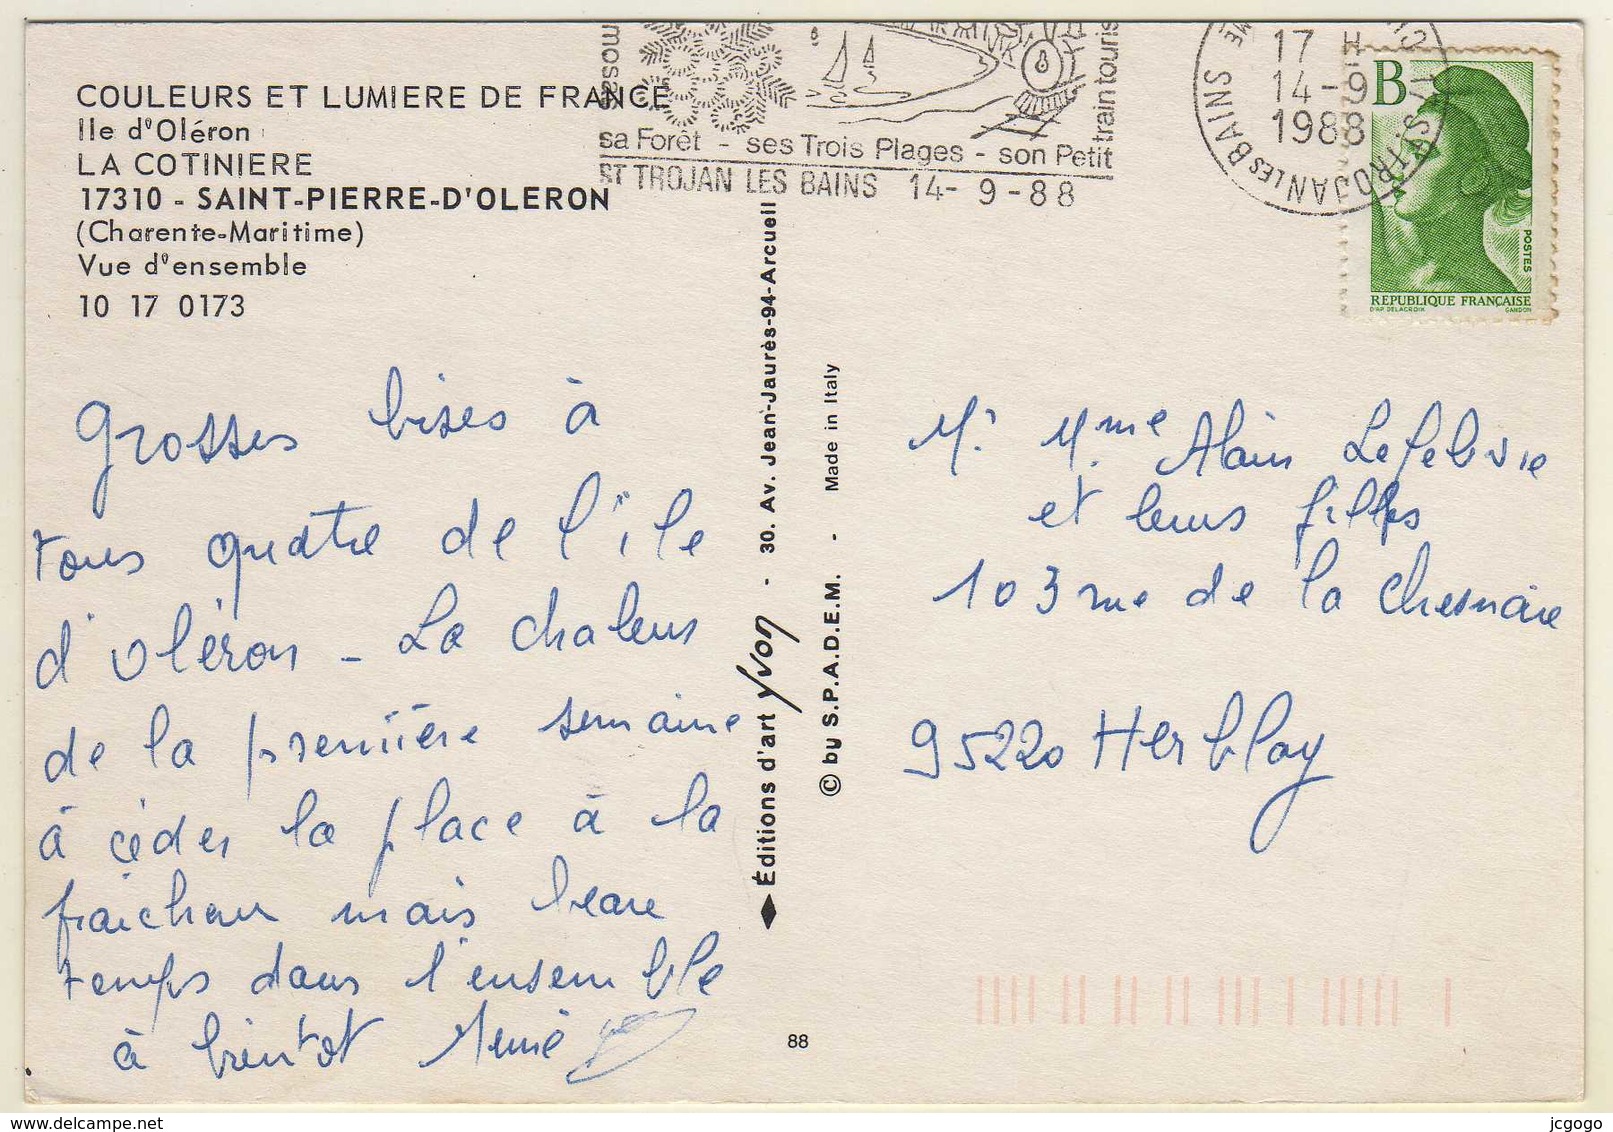 COULEURS ET LUMIERE DE FRANCE
Ile d'Oléron
LA COTINIERE
17310 - SAINT-PIERRE-D'OLERON
(Charente-Maritime)
Vue d'ensemble
10 17 0173
mosas
train touris
sa Forêt - ses Trois Plages - son Petit
ST TROJAN LES BAINS 14-9-88
17 H
14-9
1988
ST TROJAN LES BAINS
B
POSTES
REPUBLIQUE FRANÇAISE
D'AP. DELACROIX GANDON
Grosses bises à
tous quatre de l'île
d'Oléron - La chaleur
de la première semaine
à céder la place à la
fraicheur mais beau
temps dans l'ensemble
à bientot
Éditions d'art yvon - 30. Av. Jean-Jaurès-94-Arcueil
© by S.P.A.D.E.M. - Made in Italy
88
M. Mme Alain Lefebvre
et leurs filles
103 rue de la Chesnaie
95220 Herblay
jcgogo